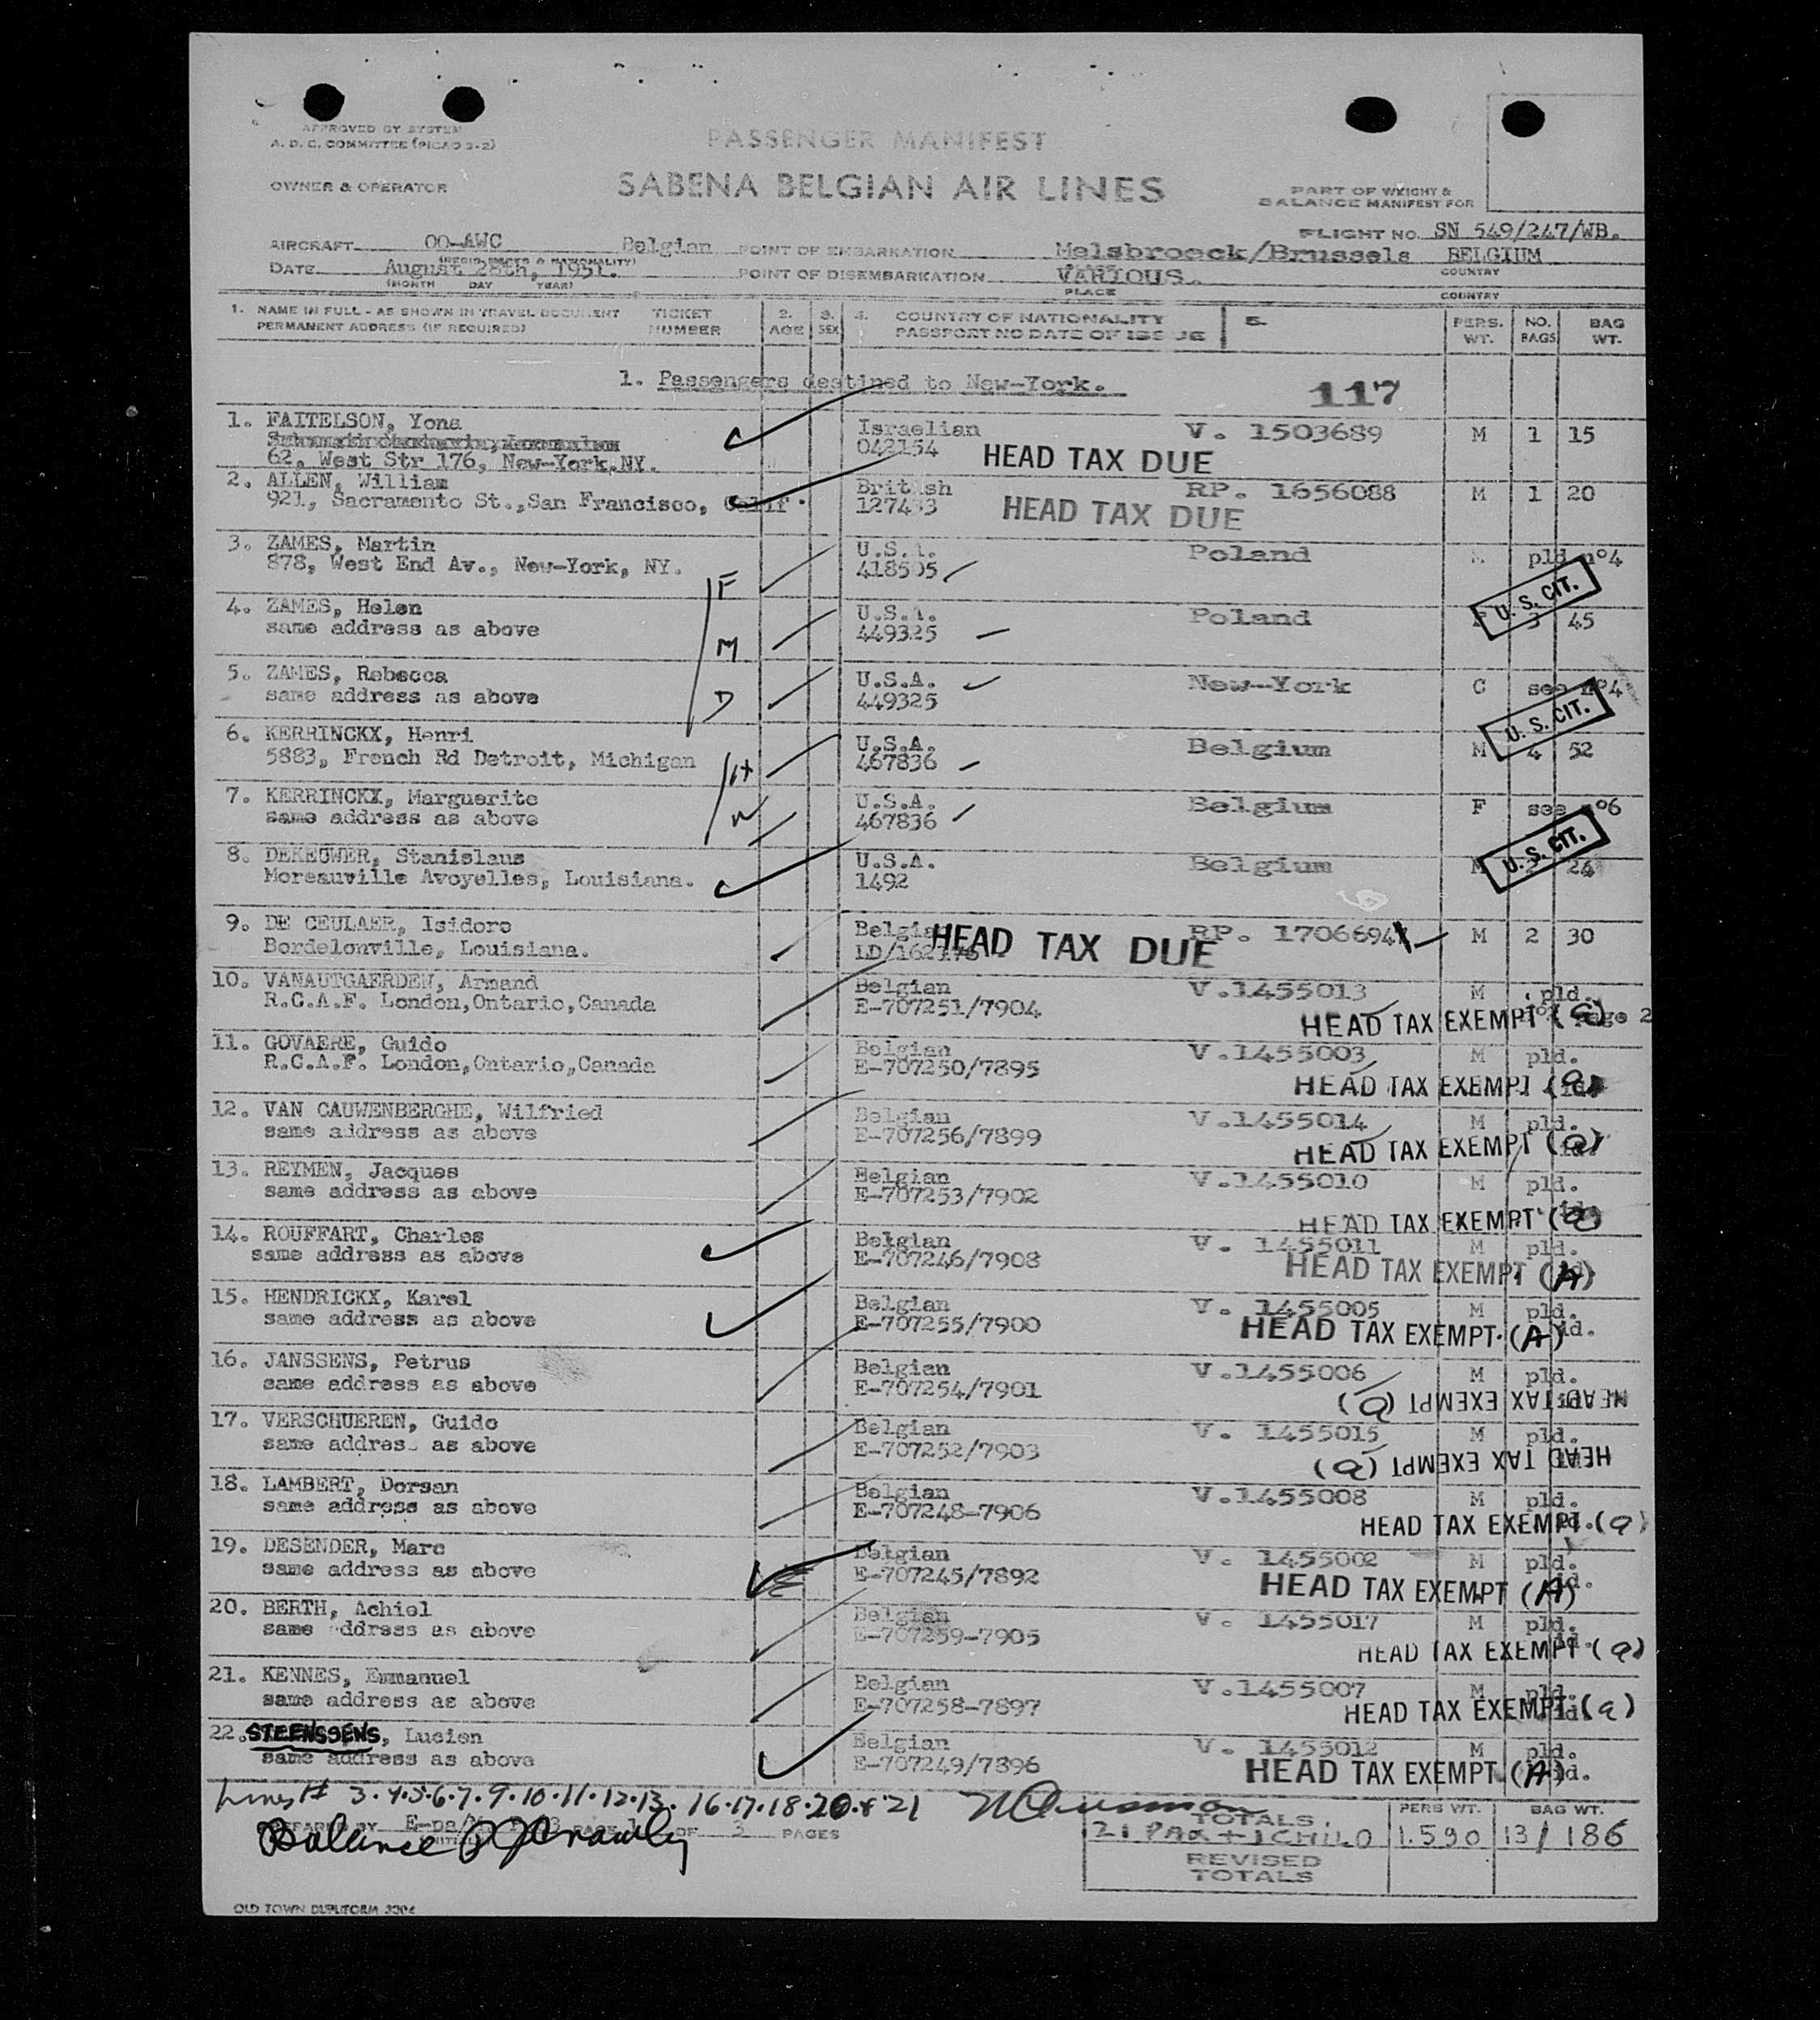 APPROVED BY SYSTEM
A. D. C. COMMITTEE (PICAO 3-2)
PASSENGER MANIFEST
OWNER & OPERATOR
SABENA BELGIAN AIR LINES
PART OF WEIGHT &
BALANCE MANIFEST FOR
FLIGHT NO. SN 549/247/WB.
AIRCRAFT OO-AWC Belgian POINT OF EMBARKATION Melsbroeck/Brussels BELGIUM
COUNTRY
DATE August 28th, 1951. POINT OF DISEMBARKATION VARIOUS.
(MONTH DAY YEAR) PLACE COUNTRY
1. NAME IN FULL - AS SHOWN IN TRAVEL DOCUMENT TICKET 2. 3. 4. COUNTRY OF NATIONALITY 5. PERS. NO. BAG
PERMANENT ADDRESS (IF REQUIRED) NUMBER AGE SEX PASSPORT NO DATE OF ISSUE WT. BAGS WT.
1. Passengers destined to New-York. 117
1. FAITELSON, Yona Israelian V. 1503689 M 1 15
042154 HEAD TAX DUE
62, West Str 176, New-York,NY.
2. ALLEN, William British RP. 1656088 M 1 20
921, Sacramento St.,San Francisco, Calif. HEAD TAX DUE
3. ZAMES, Martin U.S.A. Poland M pld n°4
878, West End Av., New-York, NY. F 418505
U. S. CIT.
4. ZAMES, Helen U.S.A. Poland 3 45
same address as above M 449325
5. ZAMES, Rebecca U.S.A. New-York C see n°4
same address as above D 449325
U. S. CIT.
6. KERRINCKX, Henri U.S.A. Belgium M 4 52
5883, French Rd Detroit, Michigan H 467836
7. KERRINCKX, Marguerite U.S.A. Belgium F see n°6
same address as above W 467836
U. S. CIT.
8. DEKEUWER, Stanislaus U.S.A. Belgium M 24
Moreauville Avoyelles, Louisiana. 1492
9. DE CEULAER, Isidore Belgian RP. 1706694 M 2 30
Bordelonville, Louisiana. HEAD TAX DUE
10. VANAUTGAERDEN, Armand Belgian V.1455013 M pld.
R.C.A.F. London,Ontario,Canada E-707251/7904 HEAD TAX EXEMPT (a) page 2
11. GOVAERE, Guido Belgian V.1455003 M pld.
R.C.A.F. London,Ontario,Canada E-707250/7895 HEAD TAX EXEMPT (a) id.
12. VAN CAUWENBERGHE, Wilfried Belgian V.1455014 M pld.
same address as above E-707256/7899 HEAD TAX EXEMPT (a)
13. REYMEN, Jacques Belgian V.1455010 M pld.
same address as above E-707253/7902 HEAD TAX EXEMPT (a)
14. ROUFFART, Charles Belgian V. 1455011 M pld.
same address as above E-707246/7908 HEAD TAX EXEMPT (A)
15. HENDRICKX, Karel Belgian V. 1455005 M pld.
same address as above E-707255/7900 HEAD TAX EXEMPT (A) id.
16. JANSSENS, Petrus Belgian V.1455006 M pld.
same address as above E-707254/7901 HEAD TAX EXEMPT (a)
17. VERSCHUEREN, Guido Belgian V. 1455015 M pld.
same address as above E-707252/7903 HEAD TAX EXEMPT (a)
18. LAMBERT, Dorsan Belgian V.1455008 M pld.
same address as above E-707248-7906 HEAD TAX EXEMPT (a)
19. DESENDER, Marc Belgian V. 1455002 M pld.
same address as above E-707245/7892 HEAD TAX EXEMPT (A) id.
20. BERTH, Achiel Belgian V. 1455017 M pld.
same address as above E-707259-7905 HEAD TAX EXEMPT (a) id.
21. KENNES, Emmanuel Belgian V.1455007 M pld.
same address as above E-707258-7897 HEAD TAX EXEMPT (a) id.
22. STEENSSENS, Lucien Belgian V. 1455012 M pld.
same address as above E-707249/7896 HEAD TAX EXEMPT (A) id.
Lines # 3.4.5.6.7.9.10.11.12.13.16.17.18.20.&21
TOTALS PERS WT. BAG WT.
PREPARED BY PAGE 1 OF 3 PAGES 21 PAX + 1 CHILD 1.590 13/186
Balance
REVISED
TOTALS
OLD TOWN DUPLIFORM 3304